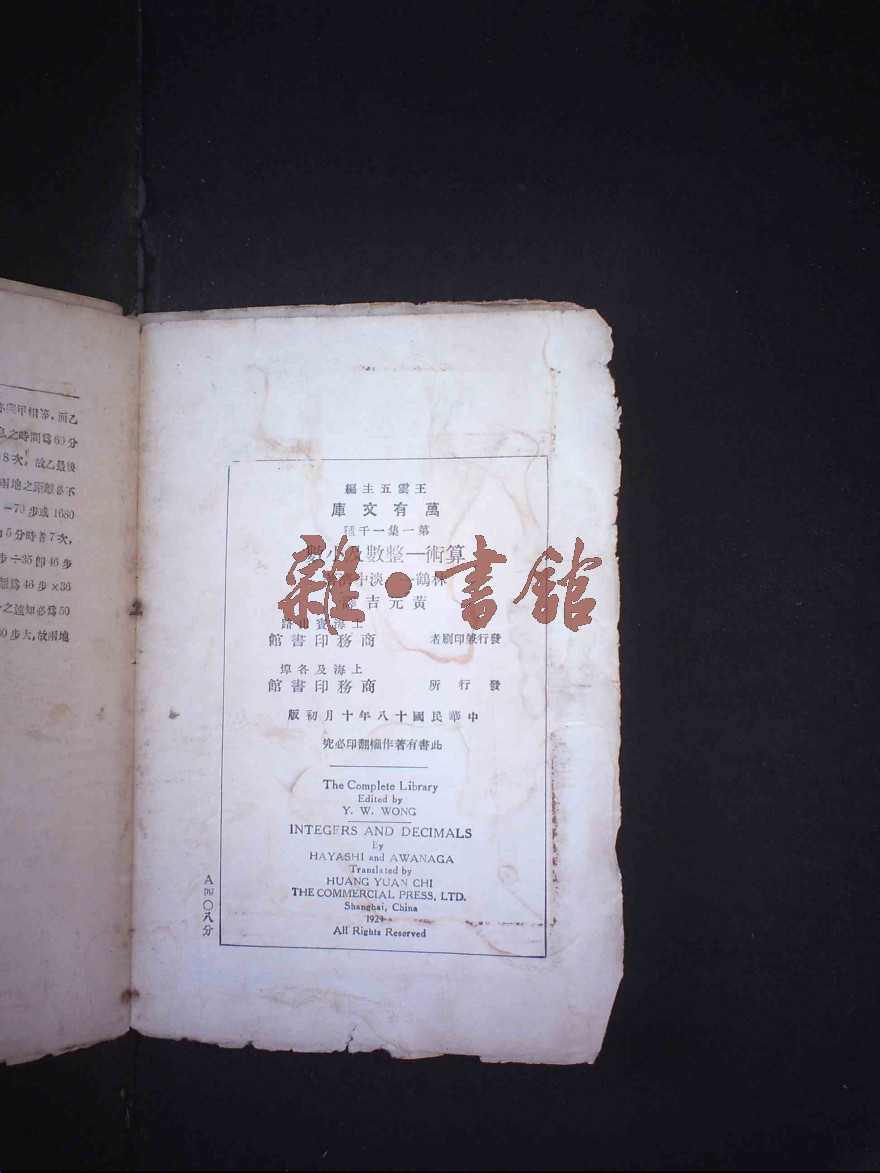 亦與甲相等,而乙
息之時間爲60分
8次,故乙最後
兩地之距離必不
-70步或1680
5分時者7次,
步÷35卽46步
爲46步×36
之速知必爲50
0步大,故兩地
王雲五主編
萬有文庫
第一集一千種
算術—整數及小數
林鶴一 淡中濟
黃元吉譯
上海寶山路
發行兼印刷者 商務印書館
上海及各埠
發行所 商務印書館
中華民國十八年十月初版
此書有著作權翻印必究
The Complete Library
Edited by
Y. W. WONG
INTEGERS AND DECIMALS
By
HAYASHI and AWANAGA
Translated by
HUANG YUAN CHI
THE COMMERCIAL PRESS, LTD.
Shanghai, China
1929
All Rights Reserved
A四〇八分
雜·書館